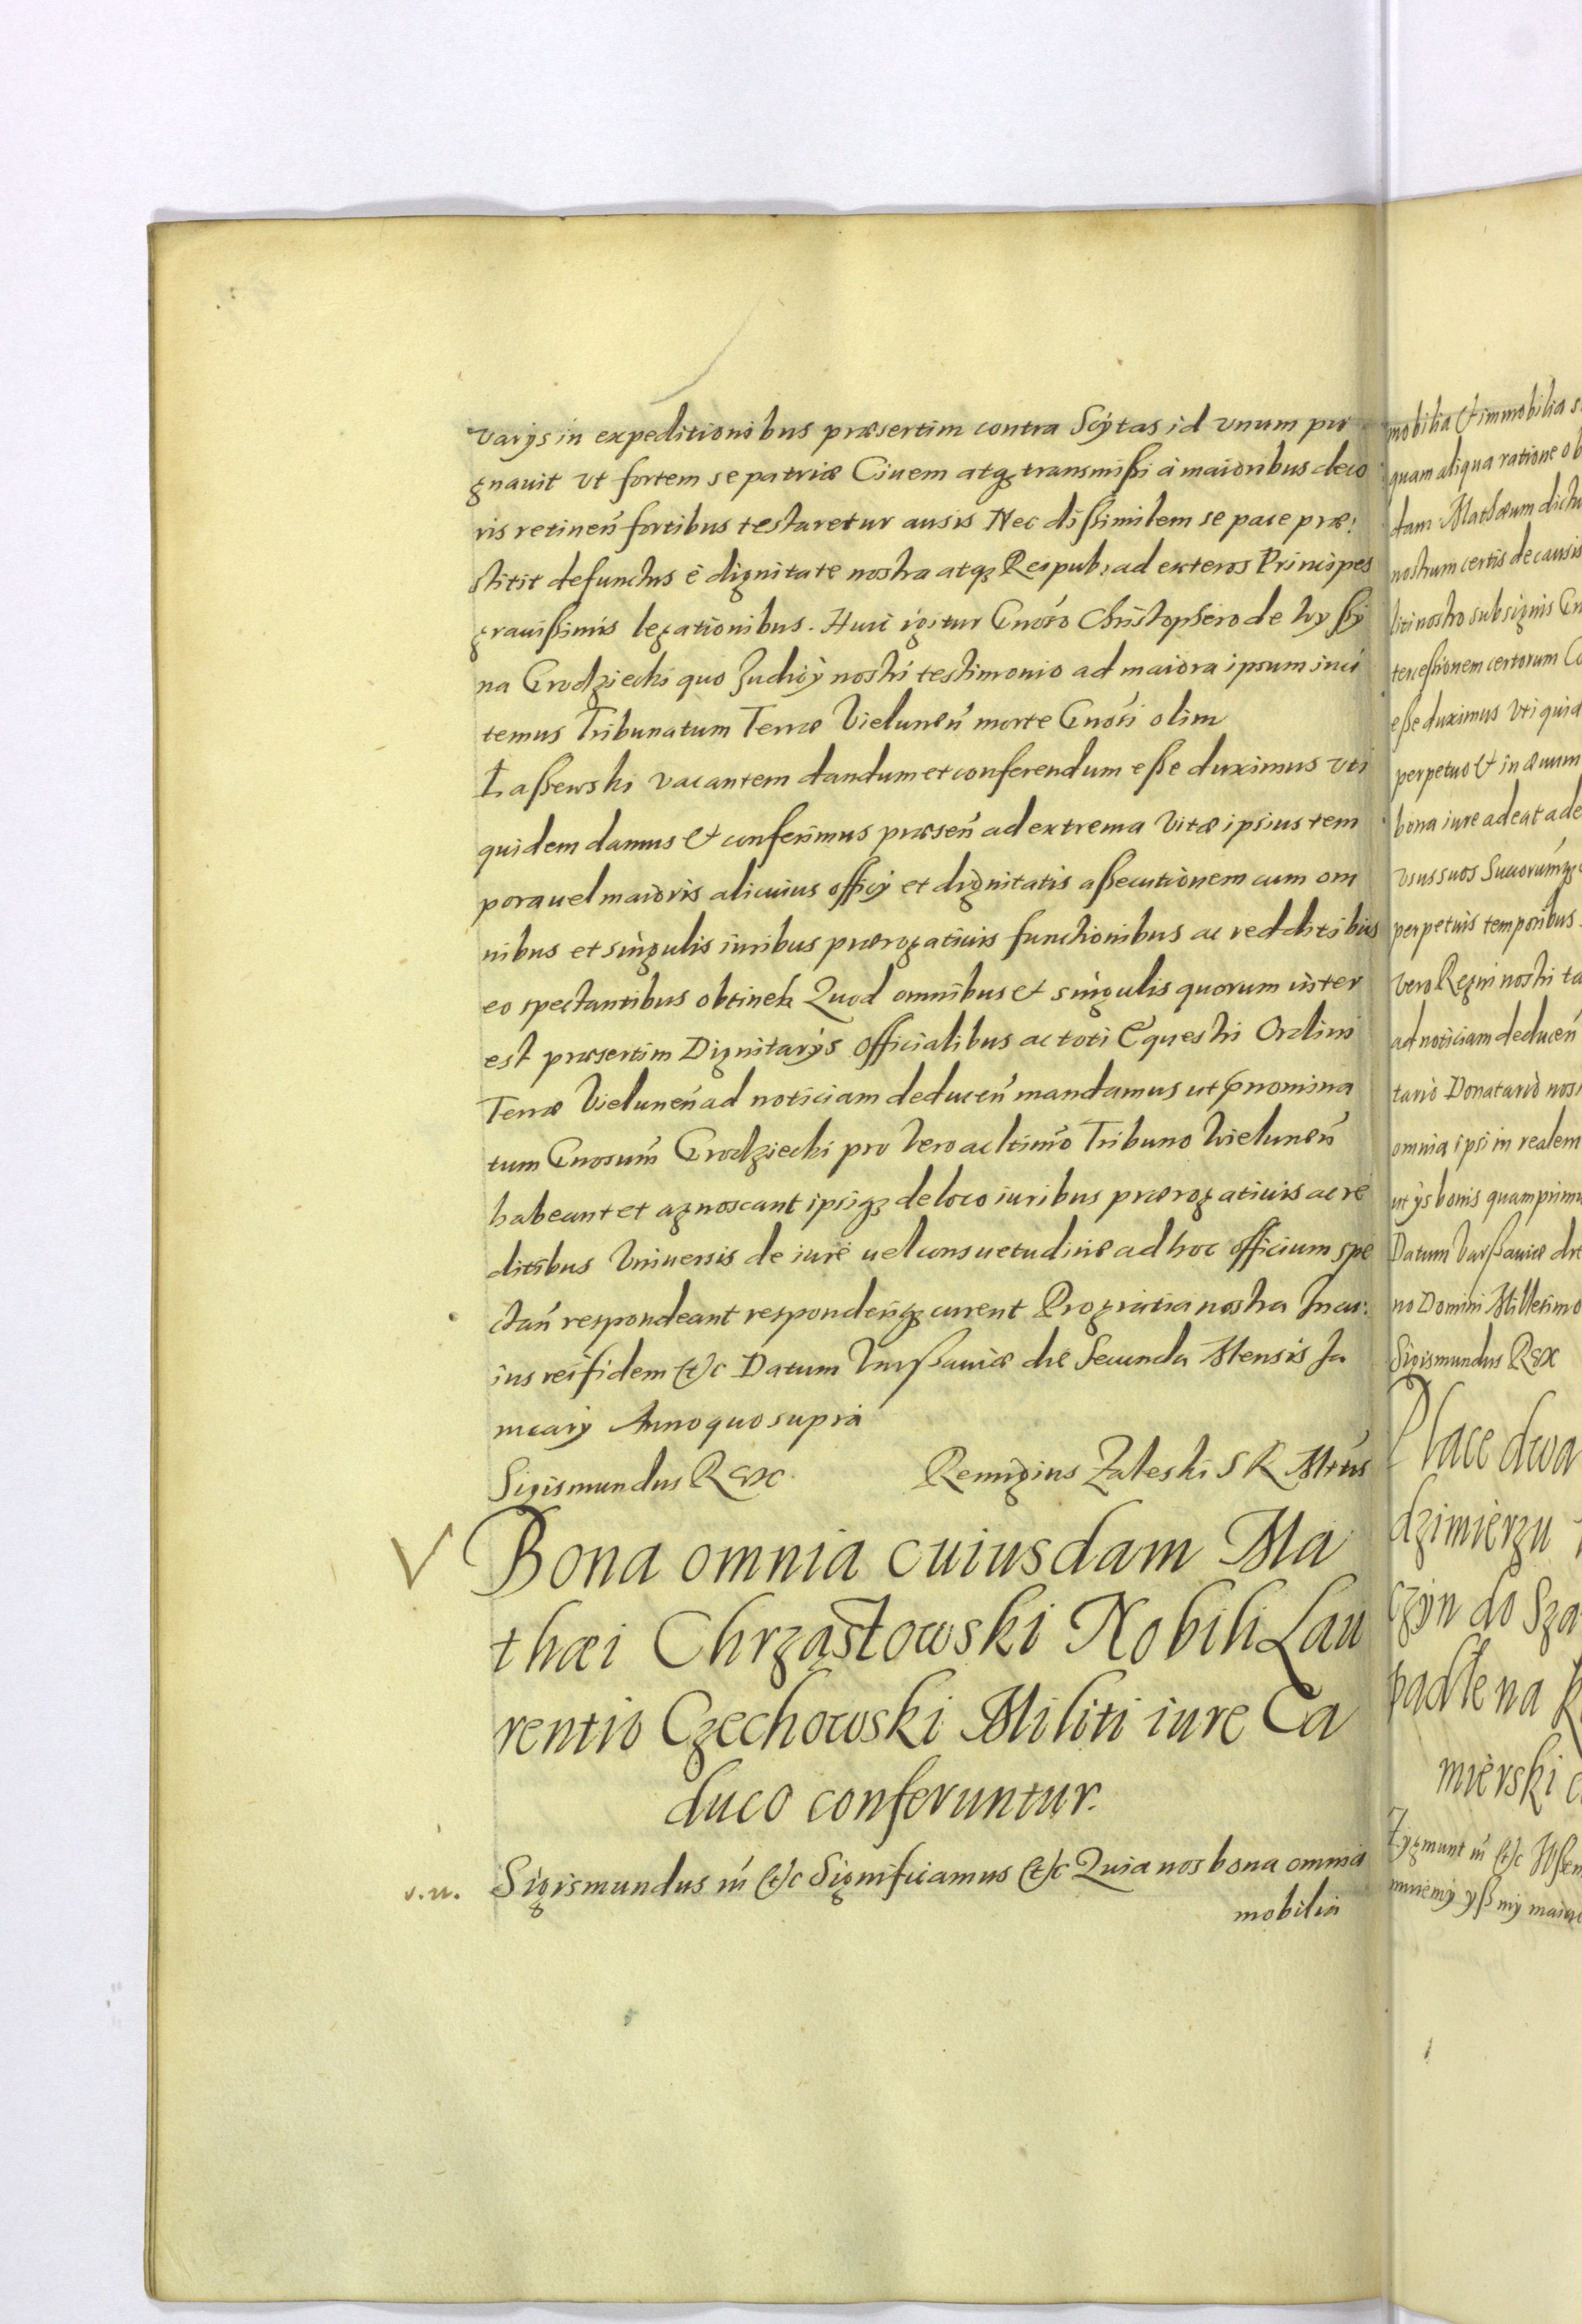 varijs in expeditionibus præsertim contra Scÿtas id vnum pu
gnauit vt fortem se patriæ Ciuem atqꝫ transmißi à maioribus deco
ris retinen̄ fortibus testaretur ausis Nec dißimilem se pace præ:
stitit defunctus è dignitate nostra atqꝫ Reipub: ad exteros Principes
grauißimis legationibus. Huic igitur Gnoso Christophero de Wyßy
na Grodziecki quo Judicÿ nostri testimonio ad maiora ipsum inci
temus Tribunatum Terræ Vielunen̄ morte Gnosi olim
Łaßewski vacantem dandum et conferendum eße duximus vti
quidem damus & conferimus præsen̄ ad extrema vitæ ipsius tem
pora uel maioris alicuius officÿ et dignitatis aßecutionem cum om
nibus et singulis iuribus prærogatiuis functionibus ac redditibus
eo spectantibus obtinen̄ Quod omnibus & singulis quorum inter
est præsertim Dignitarÿs Officialibus ac toti Equestri Ordini
Terræ Vielunen̄ ad noticiam deducen̄ mandamus ut pnomina
tum Gnosum Grodziecki pro vero ac ltimo Tribuno Vielunen̄
habeant et agnoscant ipsiqꝫ de loco iuribus prærogatiuis ac re
ditibus vniuersis de iure uel consuetudine ad hoc officium spe
ctan̄ respondeant responderiqꝫ curent Pro gratia nostra In cu:
ius rei fidem &c Datum Varßauiæ die Secunda Mensis Ja
nuarÿ Anno quo supra
Sigismundus Rex Remigius Zaleski S R Mtis
Bona omnia cuiusdam Ma
thæi Chrząstowski Nobili Lau
rentio Czechowski Militi iure Ca
duco conferuntur.
Sigismundus iii &c Significamus &c Quia nos bona omnia
mobilia
mobilia & immobilia
quam aliqua ratione ob
dam Mathæum dictu
nostrum certis de causis
liti nostro sub signis
terceßionem certorum
eße duximus vti quid
perpetuo & in æuum
bona iure adeat
vsus suos Suorumqꝫ
perpetuis temporibus.
vero Regni nostri
ad noticiam deducen̄
tario Donatario nost
omnia ipsi in realem
ut ÿs bonis quamprimu
Datum Varßauiæ die
no Domini Millesimo
Sigismundus Rex
Place dwa
dzimierzu
czyn do Sza
padłe na
mierski
Zygmunt iii &c
yß my maiąc